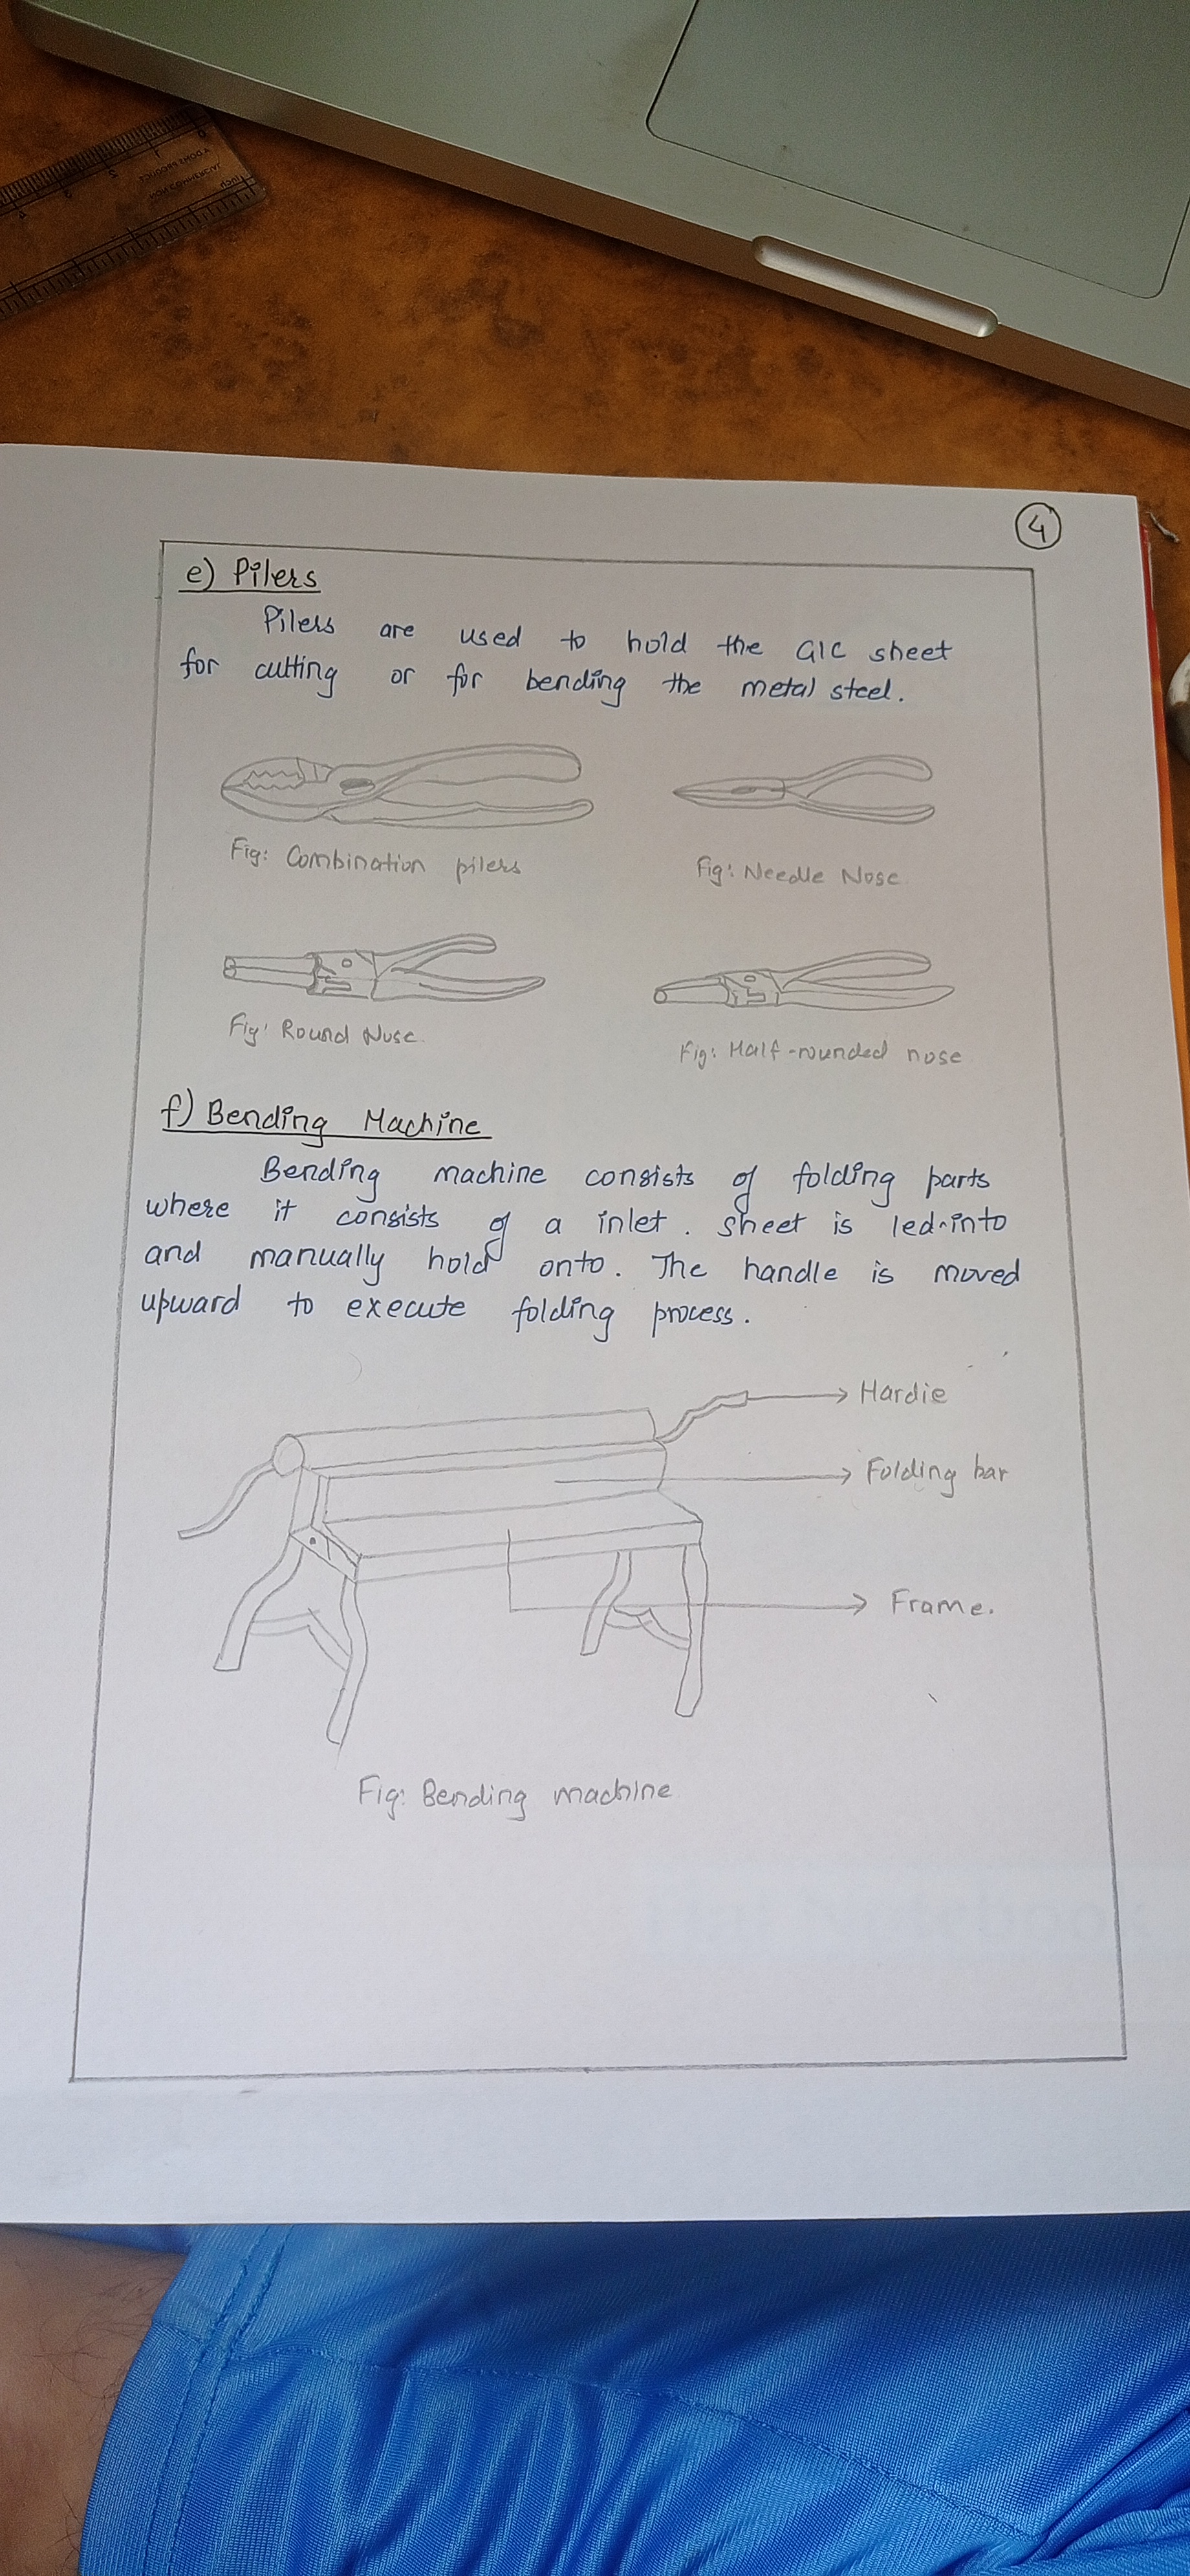 4
e) Pilers
Pilers are used to hold the GIC sheet
for cutting or for bending the metal steel.
Fig: Combination pilers
Fig: Needle Nose
Fig: Round Nose
Fig: Half-rounded nose
f) Bending Machine
Bending machine consists of folding parts
where it consists of a inlet. sheet is led-into
and manually hold onto. The handle is moved
upward to execute folding process.
Hardie
Folding bar
Frame.
Fig: Bending machine